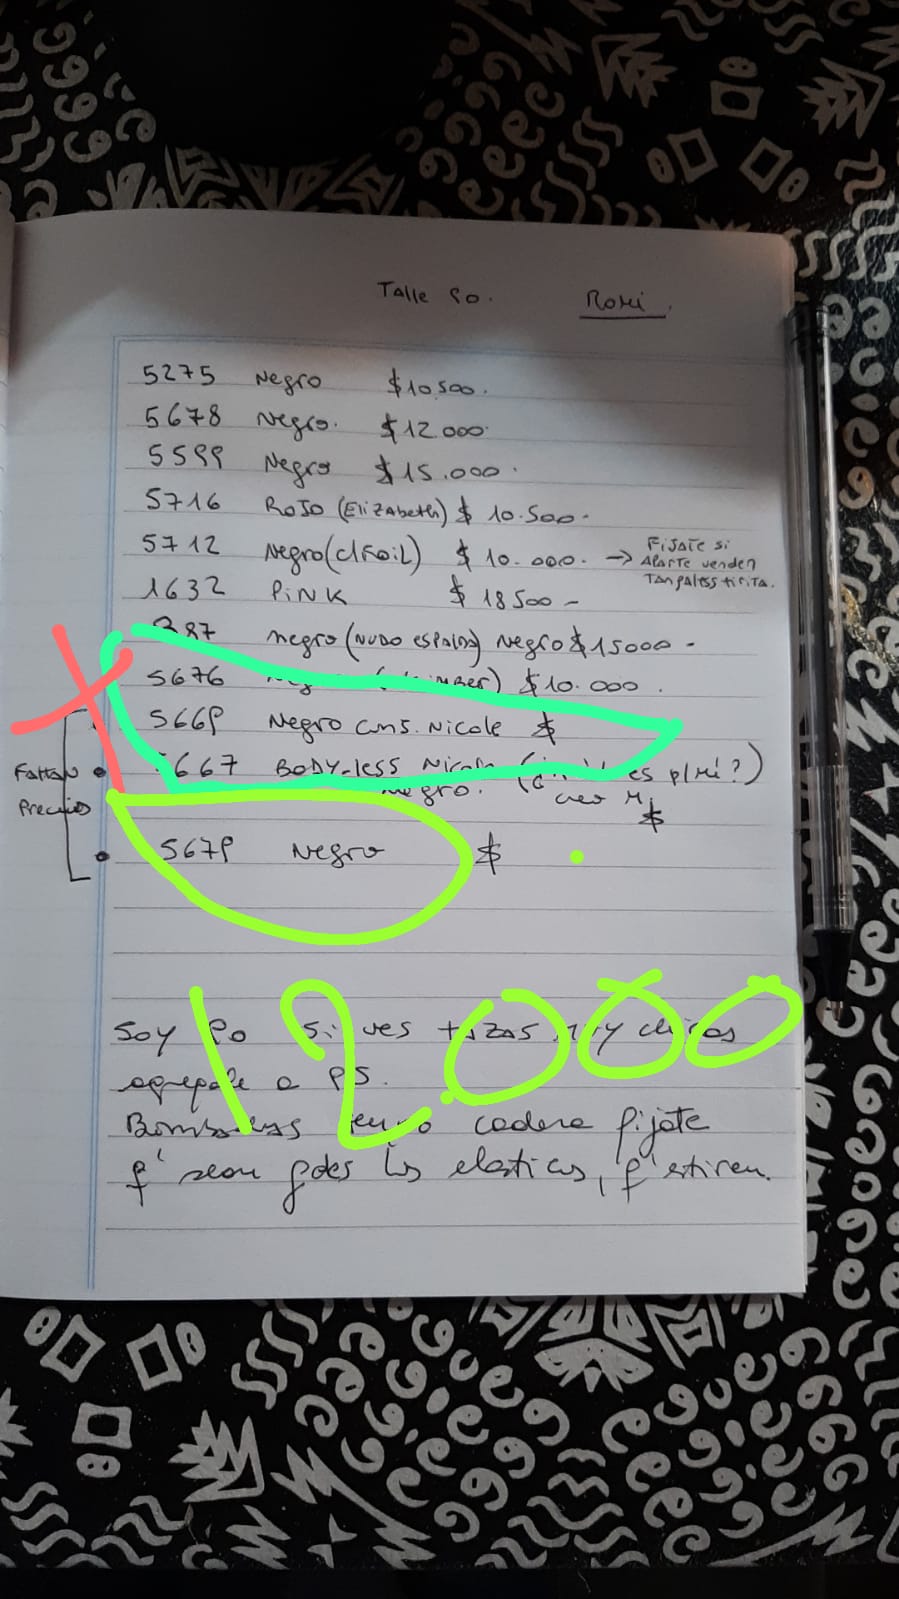 Talle 90. Romi.
5275 Negro $10.500.
5678 Negro. $12.000.
5599 Negro $15.000.
5716 Rojo (Elizabeth) $ 10.500-
5712 Negro $ 10.000. → Fijate si
aparte venden
tangaless tirita.
1632 PiNK $ 18500 -
387 negro (nudo espalda) Negro $15000 -
5676 $10.000.
5669 Negro conj. Nicole $
5667 Body-less Nicole es p/mi?)
negro. creo si
$
Faltan
Precios
5679 Negro $
12.000
Soy 90 si ves tazas muy chicas
agregale a 95.
Bombaless tengo cadera fijate
q' sean gdes los elasticos, q' estiren.